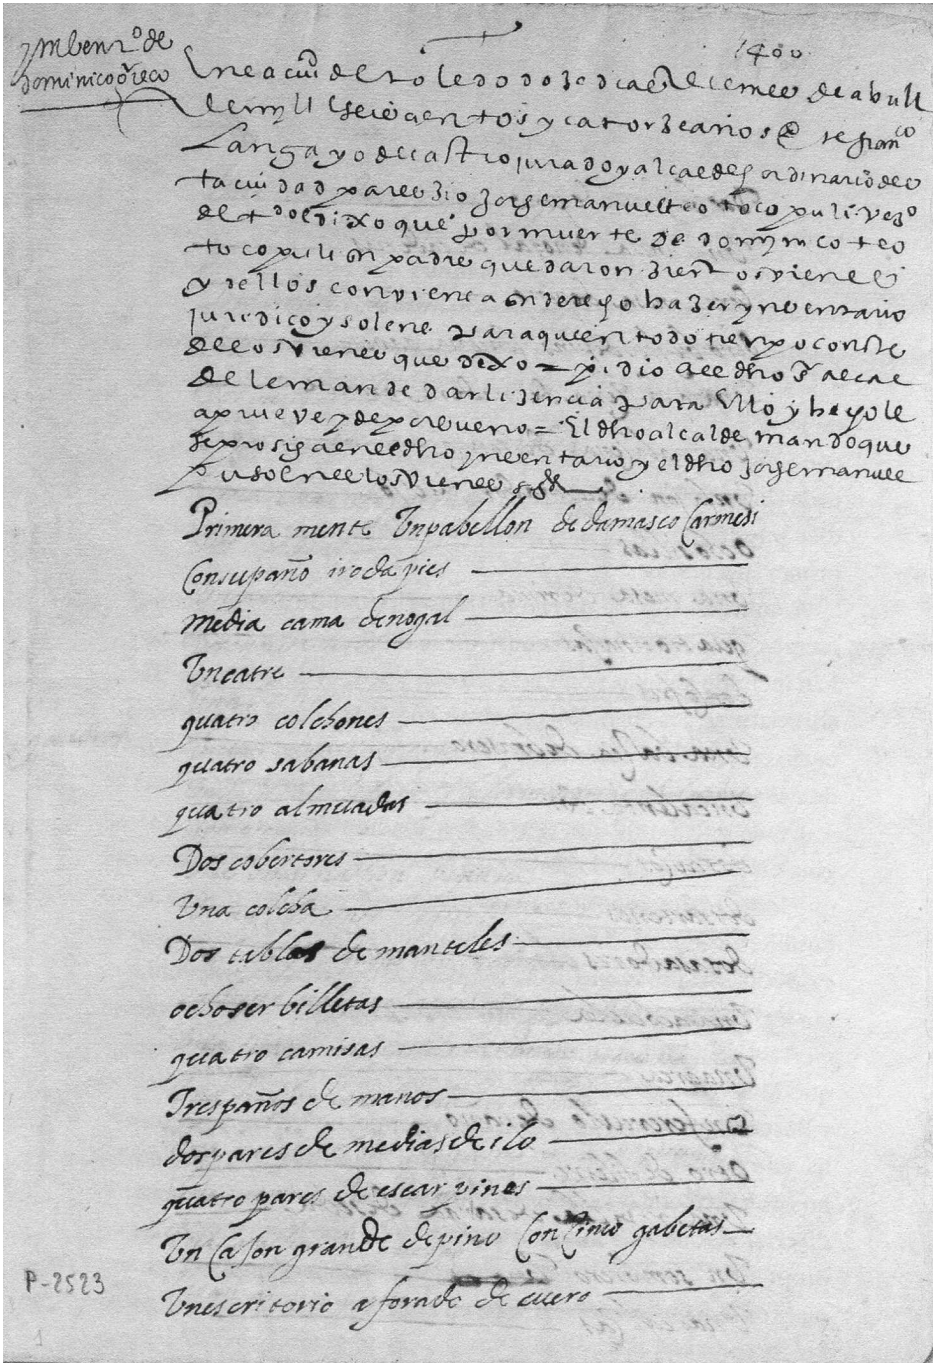 ymbenro de
dominico greco
1400
En la ciud de toledo doze dias del mes de abrill
de mill y seiscientos y catorze años ante franco
Langayo de castro jurado y alcalde ordinario de
ta ciudad parezio Jorge manuel teotocopuli vezo
de tdo e dixo que por muerte de dominico teo
tocopuli su padre quedaron ziertos vienes
y dellos conviene a su derecho hazer ynventario
juridico y solene para que en todo tienpo conste
de los vienes que dexo = pidio al dho sr alcalde
de le mande dar lizencia para ello y hecho le
aprueve =
El dho alcalde mando que
se prosiga en el dho ynventario y el dho Jorge manuel
puso en el los vienes sigtes
Primera mente Un pabellon de damasco Carmesi
Con su paño
media cama de nogal
Un catre
quatro colchones
quatro sabanas
quatro almuadas
Dos cobertores
Una colcha
Dos tablas de manteles
ocho serbilletas
quatro camisas
Tres paños de manos
dos pares de medias de ilo
quatro pares de escarpines
Un Caxon grande de pino Con Cinco gabetas
Un escritorio aforado de cuero
P-2523
1